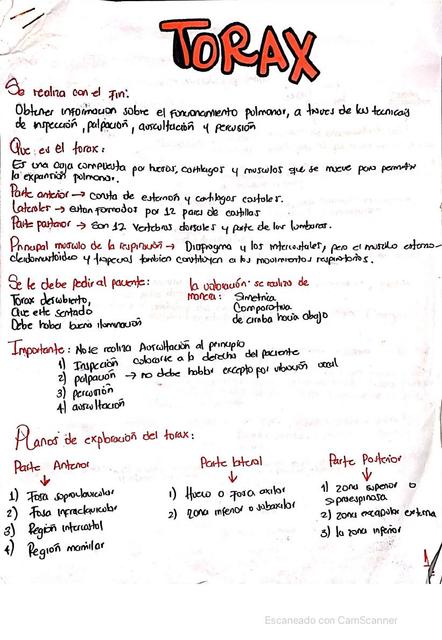 TORAX
Se realiza con el fin:
Obtener informacion sobre el funcionamiento pulmonar, a traves de las tecnicas
de inspección, palpación, auscultación y percusión
Que es el torax:
Es una caja compuesta por huesos, cartilagos y musculos que se mueve para permitir
la expansión pulmonar.
Parte anterior → consta de esternon y cartilagos costales.
Laterales → estan formados por 12 pares de costillas
Parte posterior → Son 12 Vertebras dorsales y parte de las lumbares.
Principal musculo de la respiración → Diafragma y los intercostales, pero el musculo esterno-
cleidomastoideo y trapecios tambien contribuyen a los movimientos respiratorios.
Se le debe pedir al paciente:
Torax descubierto,
Que este sentado
Debe haber buena iluminación
la valoración se realiza de
manera: Simetrica
Comparativa
de arriba hacia abajo
Importante: No se realiza Auscultación al principio
1) Inspección colocarse a la derecha del paciente
2) palpación → no debe hablar excepto por vibración vocal
3) percusión
4) auscultación
Planos de exploración del torax:
Parte Anterior
1) Fosa supraclavicular
2) Fosa infraclavicular
3) Región intercostal
4) Región mamilar
Parte lateral
1) Hueco o fosa axilar
2) zona inferior o subaxilar
Parte Posterior
1) zona superior o
supraespinosa
2) zona escapular externa
3) la zona inferior
1
Escaneado con CamScanner